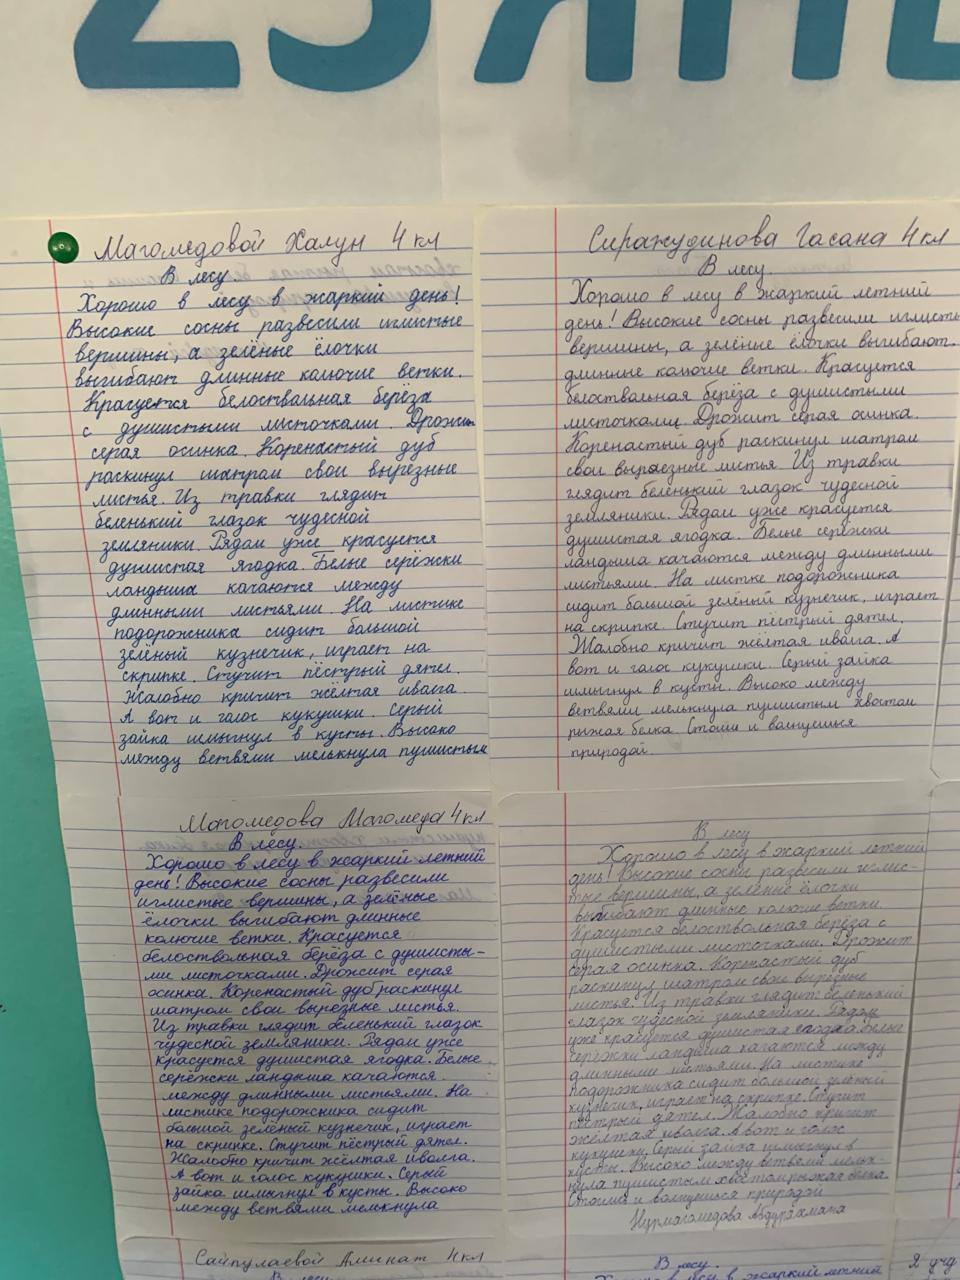 Магомедовой Халун 4 кл
В лесу.
Хорошо в лесу в жаркий день!
Высокие сосны развесили иглистые
вершины, а зелёные ёлочки
выгибают длинные колючие ветки.
Красуется белоствольная берёза
с душистыми листочками. Дрожит
серая осинка. Коренастый дуб
раскинул шатром свои вырезные
листья. Из травки глядит
беленький глазок чудесной
земляники. Рядом уже красуется
душистая ягодка. Белые серёжки
ландыша качаются между
длинными листьями. На листике
подорожника сидит большой
зелёный кузнечик, играет на
скрипке. Стучит пёстрый дятел.
Жалобно кричит жёлтая иволга.
А вот и голос кукушки. Серый
зайка шмыгнул в кусты. Высоко
между ветвями мелькнула пушистым
Сиражудинова Гасана 4 кл
В лесу.
Хорошо в лесу в жаркий летний
день! Высокие сосны развесили иглисты
вершины, а зелёные ёлочки выгибают.
длинные колючие ветки. Красуется
белоствольная берёза с душистыми
листочками. Дрожит серая осинка.
Коренастый дуб раскинул шатром
свои вырезные листья. Из травки
глядит беленький глазок чудесной
земляники. Рядом уже красуется
душистая ягодка. Белые серёжки
ландыша качаются между длинными
листьями. На листке подорожника
сидит большой зелёный кузнечик, играет
на скрипке. Стучит пёстрый дятел.
Жалобно кричит жёлтая иволга. А
вот и голос кукушки. Серый зайка
шмыгнул в кусты. Высоко между
ветвями мелькнула пушистым хвостом
рыжая белка. Стоиш и волнуешься
природой.
Магомедова Магомеда 4 кл
В лесу.
Хорошо в лесу в жаркий летний
день! Высокие сосны развесили
иглистые вершины, а зелёные
ёлочки выгибают длинные
колючие ветки. Красуется
белоствольная берёза с душисты-
ми листочками. Дрожит серая
осинка. Коренастый дуб раскинул
шатром свои вырезные листья.
Из травки глядит беленький глазок
чудесной земляники. Рядом уже
красуется душистая ягодка. Белые
серёжки ландыша качаются
между длинными листьями. На
листике подорожника сидит
большой зелёный кузнечик, играет
на скрипке. Стучит пёстрый дятел.
Жалобно кричит жёлтая иволга.
А вот и голос кукушки. Серый
зайка шмыгнул в кусты. Высоко
между ветвями мелькнула
В лесу
Хорошо в лесу в жаркий летний
день! Высокие сосны развесили иглис-
тые вершины, а зелёные ёлочки
выгибают длинные колючие ветки.
Красуется белоствольная берёза с
душистыми листочками. Дрожит
серая осинка. Коренастый дуб
раскинул шатром свои вырезные
листья. Из травки глядит беленький
глазок чудесной земляники. Рядом
уже красуется душистая ягодка. Белые
серёжки ландыша качаются между
длинными листьями. На листике
подорожника сидит большой зелёный
кузнечик, играет на скрипке. Стучит
пёстрый дятел. Жалобно кричит
жёлтая иволга. А вот и голос
кукушки. Серый зайка шмыгнул в
кусты. Высоко между ветвями мельк-
нула пушистым хвостом рыжая белка.
Стоишь и волнуешься природой
Нурмагомедова Абдурахмана
Сайпулаевой Аминат 4 кл
В лесу.
В лесу.
Хорошо в лесу в жаркий летний